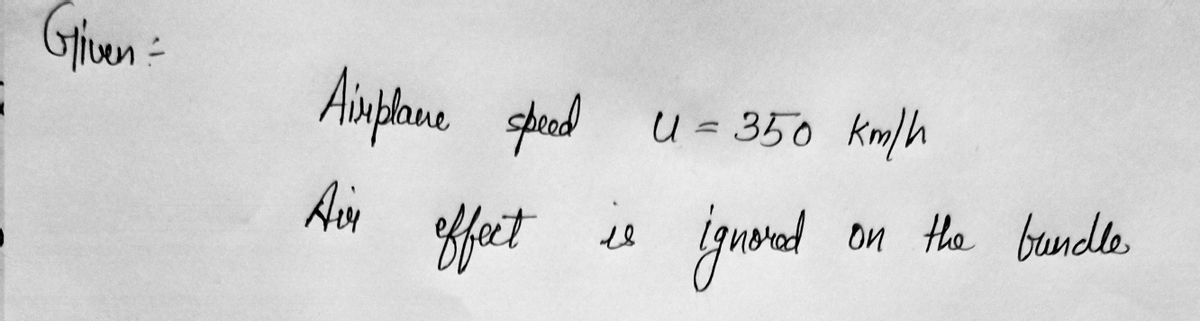 Given :-
Airplane speed u = 350 Km/h
Air effect is ignored on the bundle